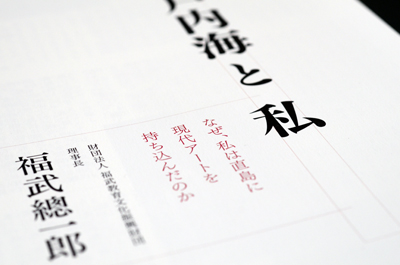 内海と私
なぜ、私は直島に
現代アートを
持ち込んだのか
財団法人 福武教育文化振興財団
理事長
福武總一郎